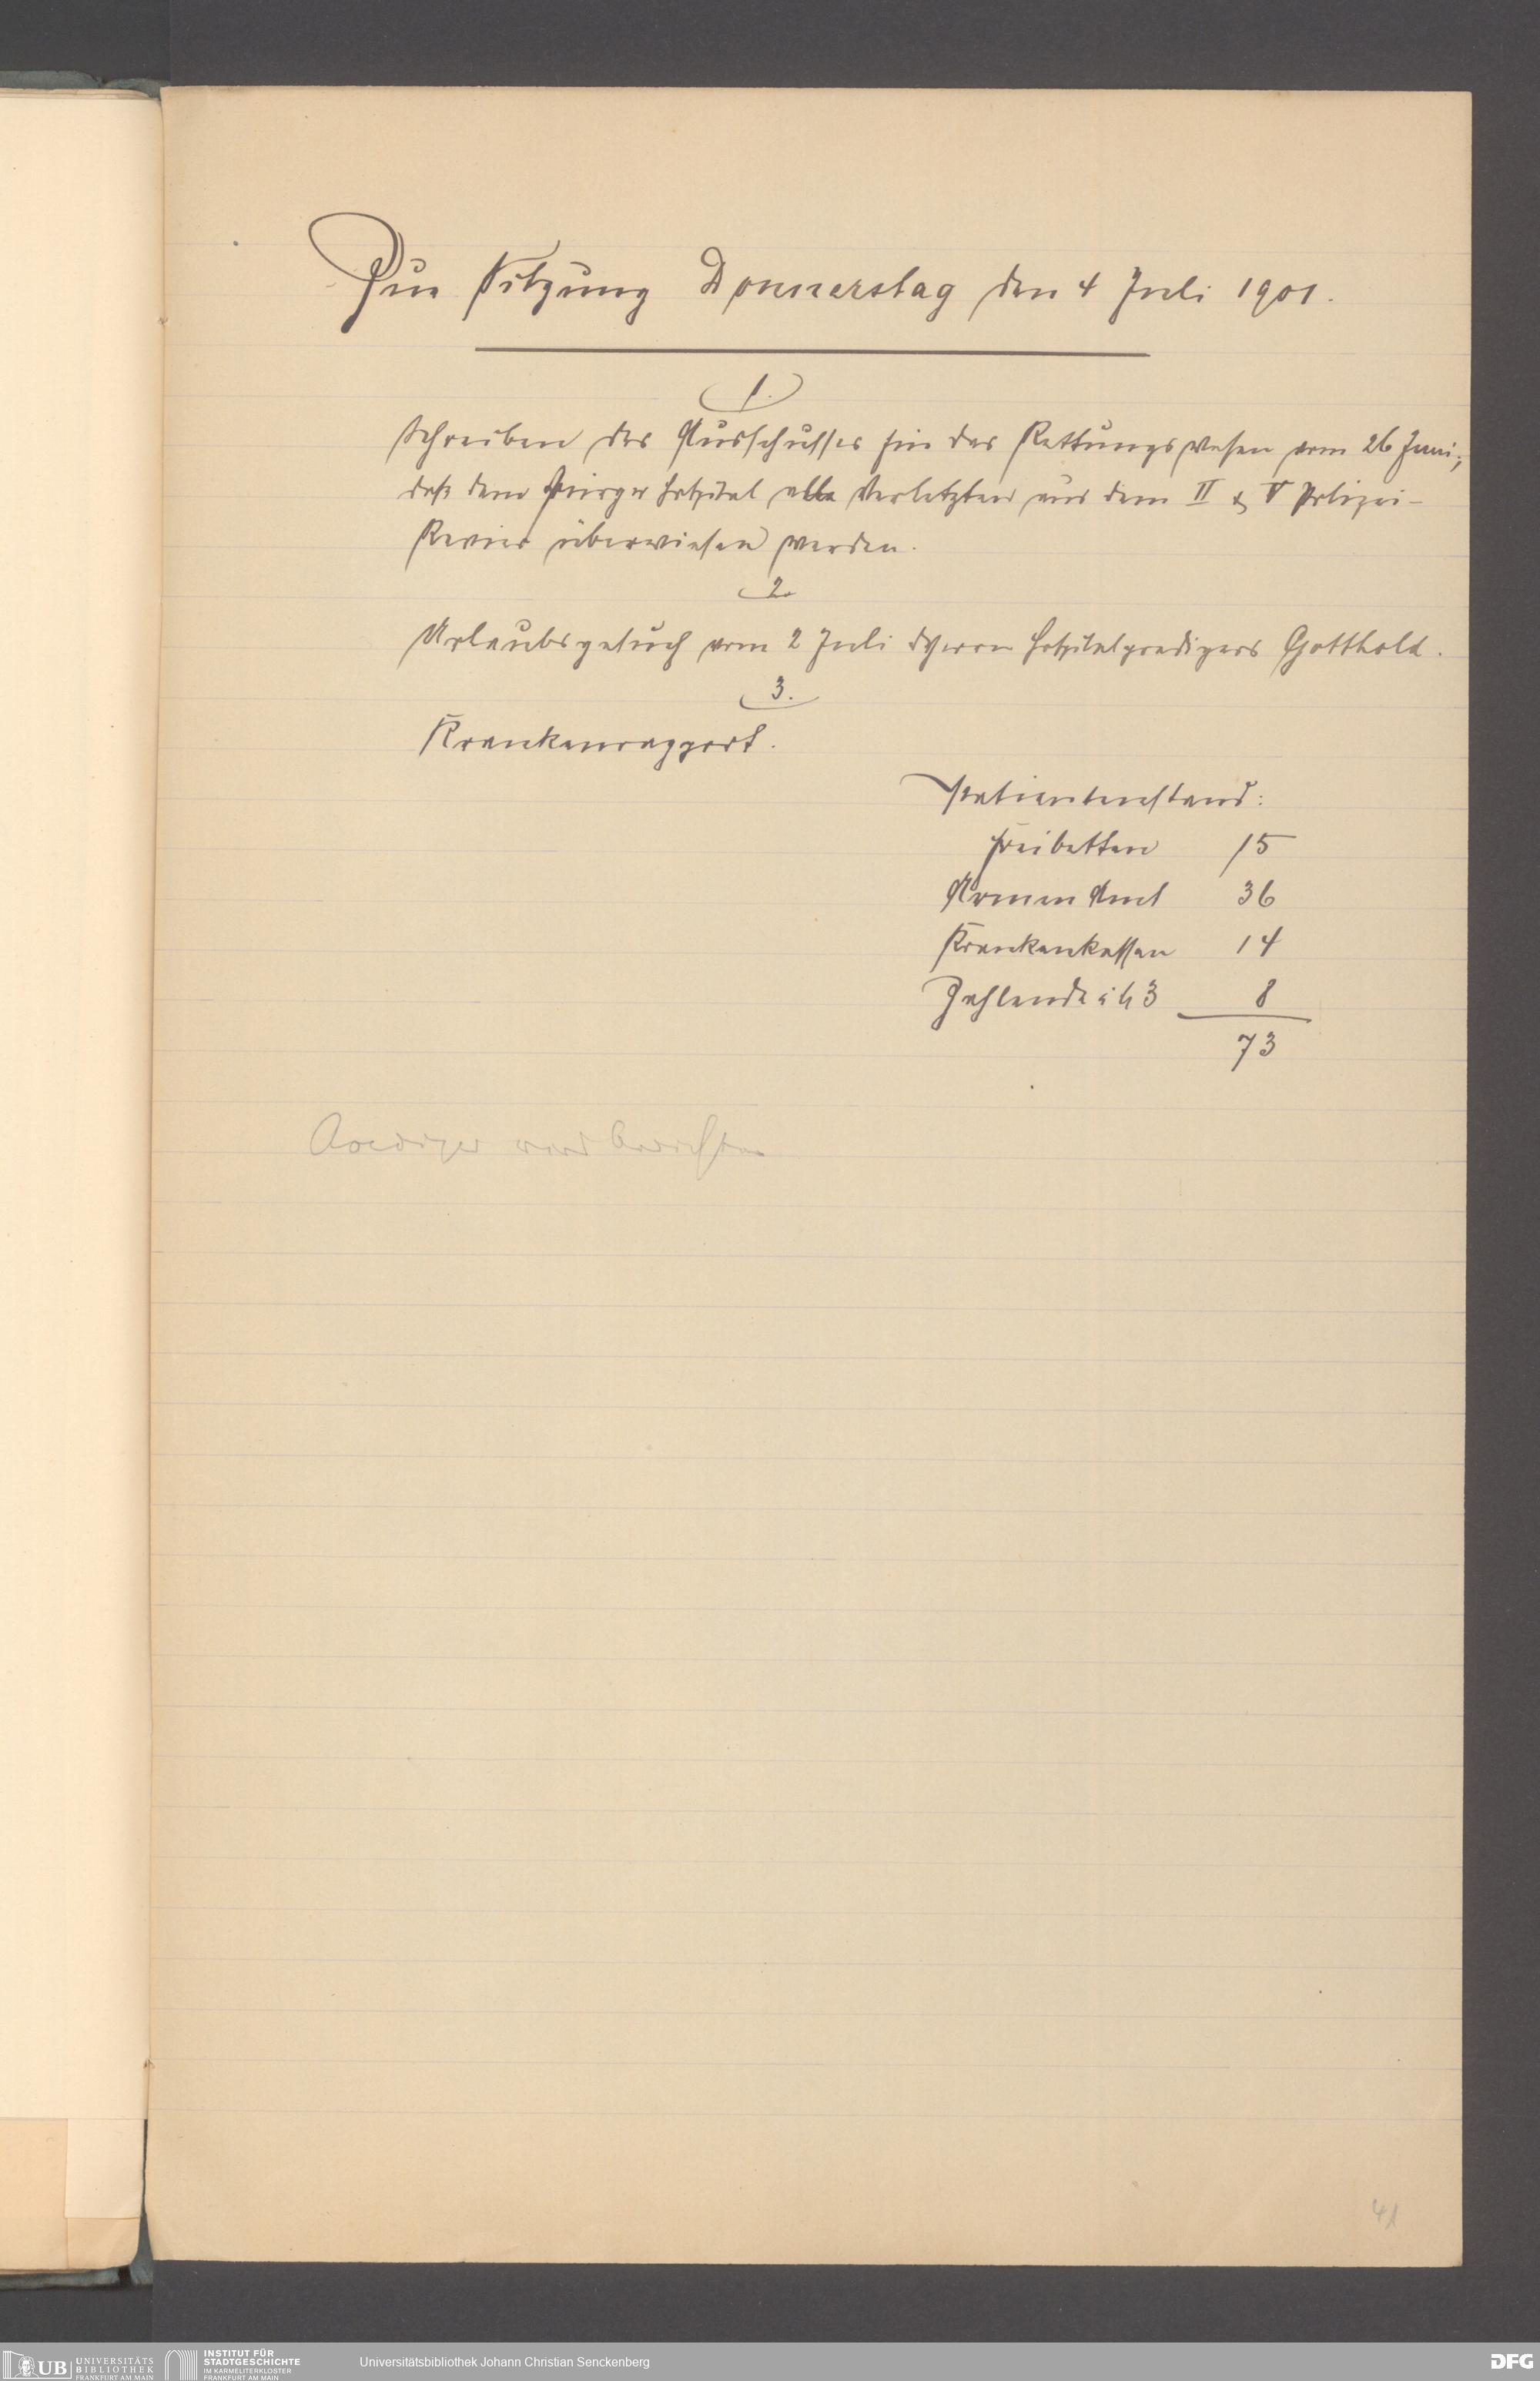 Zur Sitzung Donnerstag den 4 Juli 1901.
1.
Schreiben des Ausschusses für das Rettungswesen vom 26 Juni;
daß dem Bürger Hospital alle Verletzten aus dem II & V Polizei-
Revier überwiesen werden.
2.
Urlaubsgesuch vom 2 Juli d Herrn Hospitalpredigers Gotthold.
3.
Krankenrapport.
Patientenstand:
Freibetten 15
Armen Amt 36
Krankenkassen 14
Zahlende 3 8
73
Roediger wird berichten
41
UB UNIVERSITÄTS BIBLIOTHEK FRANKFURT AM MAIN
INSTITUT FÜR STADTGESCHICHTE IM KARMELITERKLOSTER FRANKFURT AM MAIN
Universitätsbibliothek Johann Christian Senckenberg
DFG